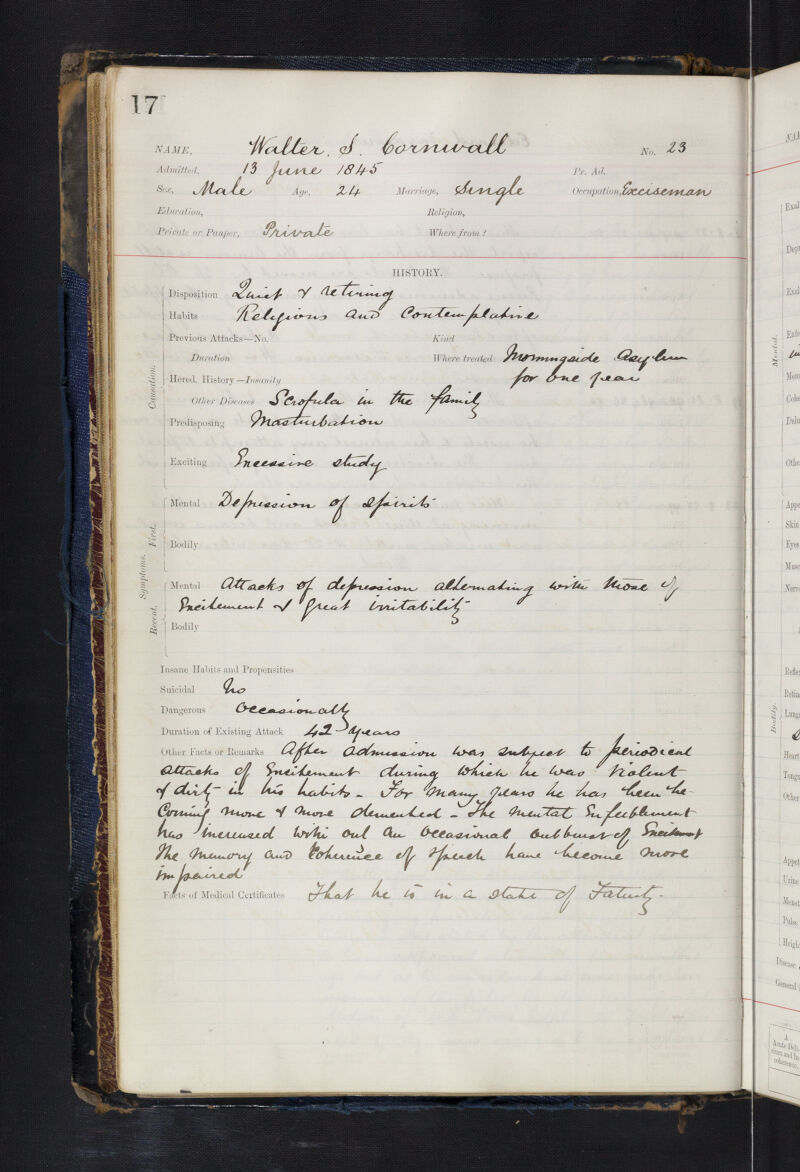 17
NAME, Walter. S. Cornwall No. 23
Admitted, 13 June 1845 Pr. Ad.
Sex, Male Age, 24 Marriage, Single Occupation, Exciseman
Education, Religion,
Private or Pauper, Private Where from?
HISTORY.
Causation.
Disposition Quiet & retiring
Habits Religious and Contemplative
Previous Attacks—No. Kind
Duration Where treated Morningside Asylum
for one year
Hered. History—Insanity
Other Diseases Scrofula in the family
Predisposing Masturbation
Exciting Excessive study
Symptoms.
First.
Mental Depression of spirits
Bodily
Recent.
Mental Attacks of depression alternating with those of
Excitement & great irritability
Bodily
Insane Habits and Propensities
Suicidal No
Dangerous Occasionally
Duration of Existing Attack 42 years
Other Facts or Remarks After admission was subject to periodical
attacks of Excitement during which he was violent
& dirty in his habits - For many years he has been be-
coming more & more demented - The mental Enfeeblement
has increased with out an occasional outburst of Excitement
The memory and Coherence of speech have become more
impaired
Facts of Medical Certificates That he is in a state of Fatuity.
Mental.
Bodily.
Skin
Eyes
Heart
Urine
Pulse
Disease,
A